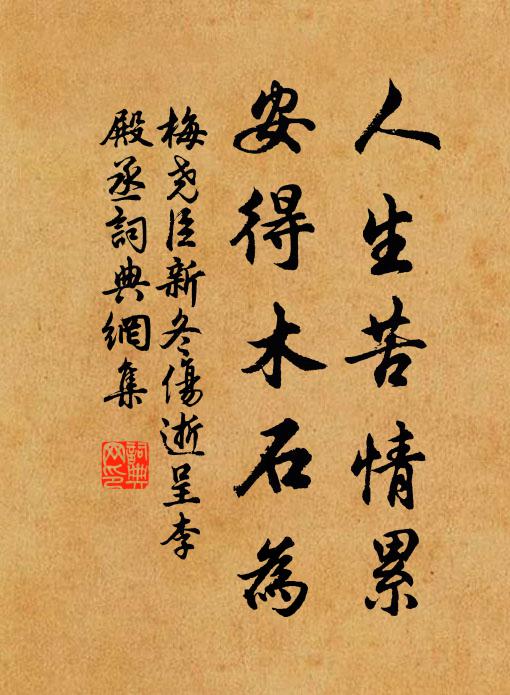 人生苦情累
安得木石為
梅堯臣新冬傷逝呈李
殿丞詞典網集
詞典網印